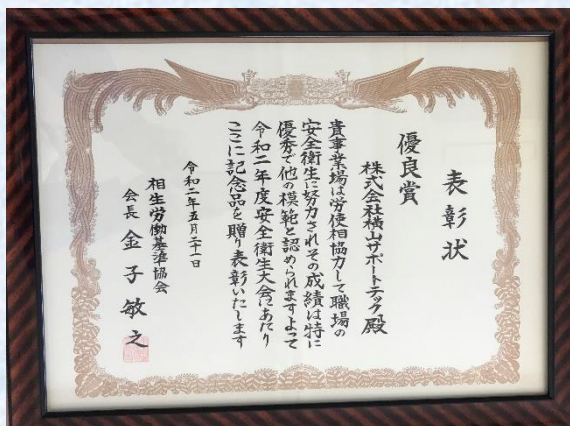 表彰状
優良賞
株式会社横山サポートテック殿
貴事業場は労使相協力して職場の
安全衛生に努力されその成績は特に
優秀で他の模範と認められますよって
令和二年度安全衛生大会にあたり
ここに記念品を贈り表彰いたします
令和二年五月二十一日
相生労働基準協会
会長 金子敏之